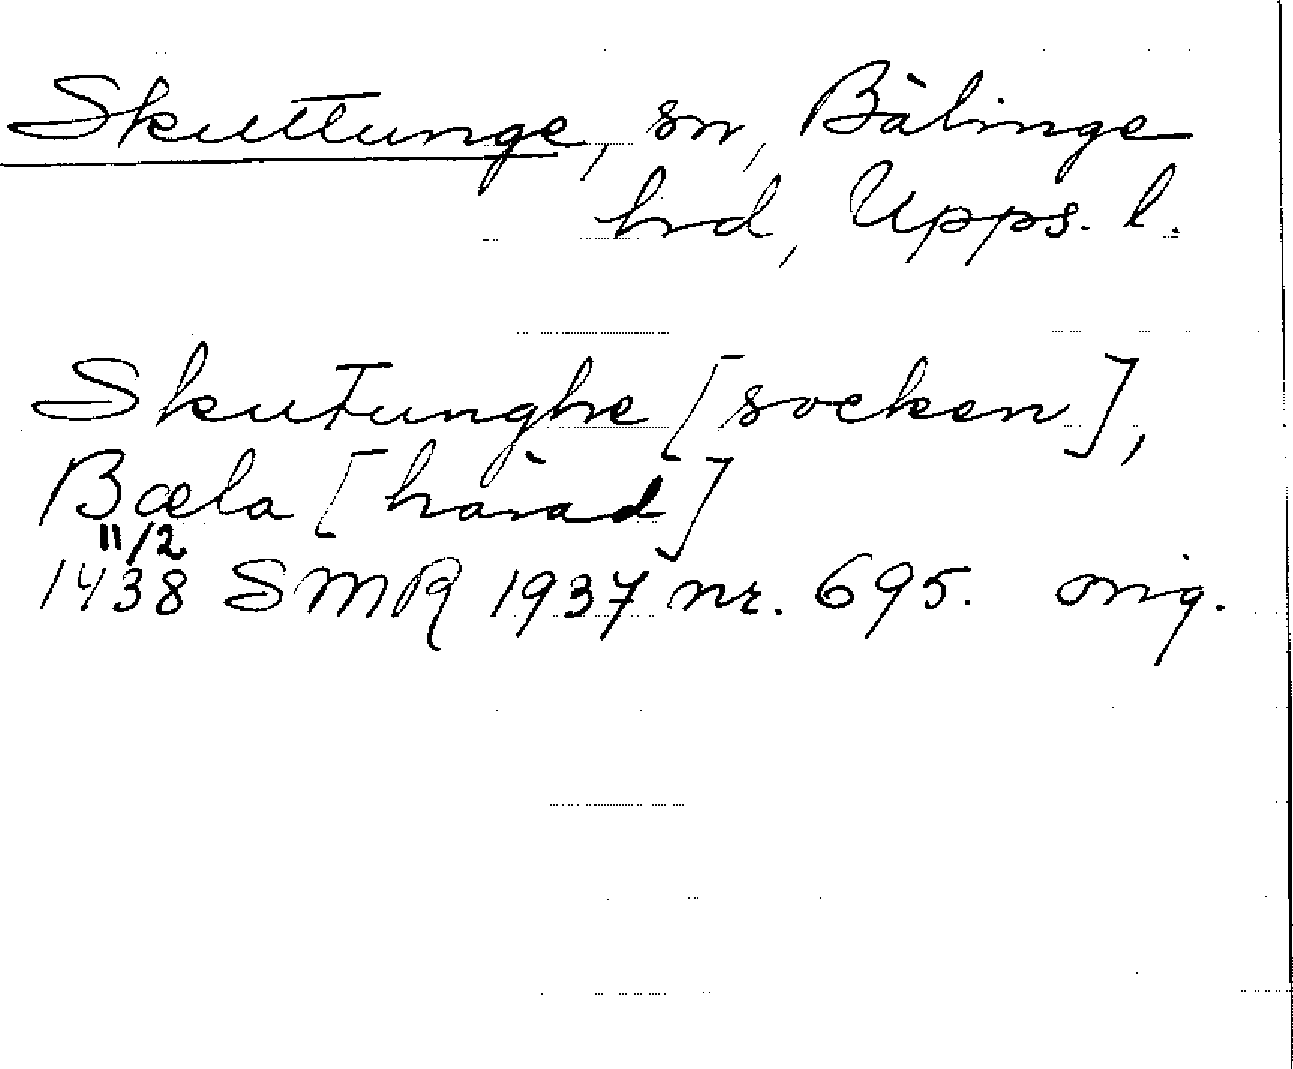 Skuttunge, sn, Bälinge
hrd, Upps. l.
Skutunghe [socken],
Bæla [härad]
11/2
1438 SMR 1937 nr. 695. orig.